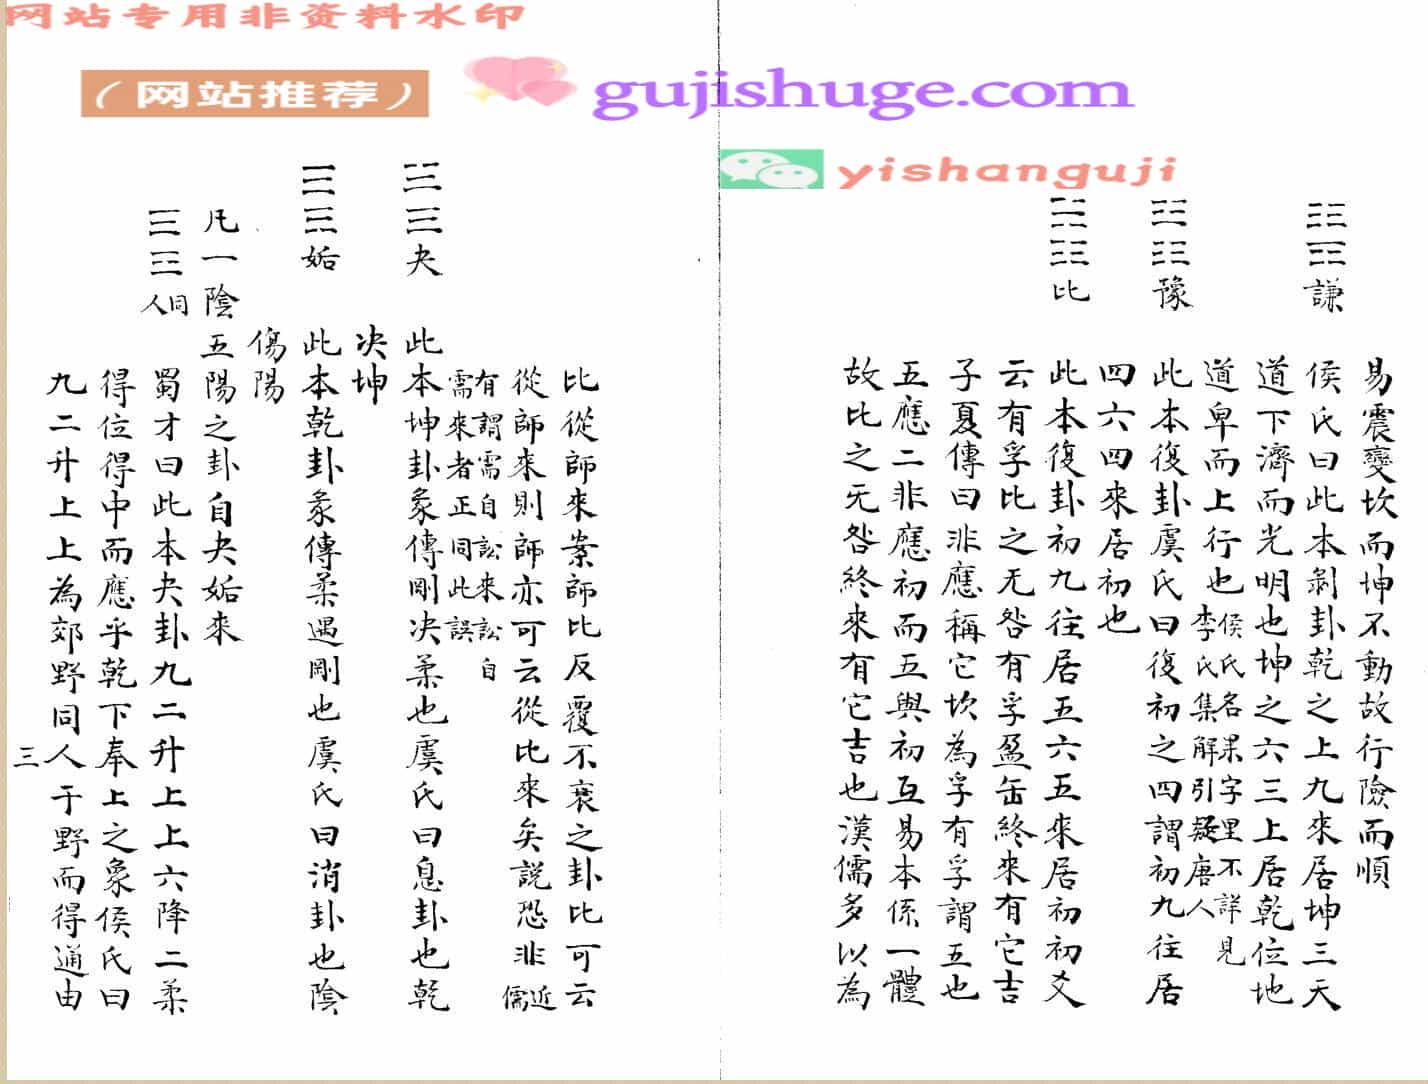 网站专用非资料水印
（网站推荐）
gujishuge.com
yishanguji
易震變坎而坤不動故行險而順
謙
侯氏曰此本剝卦乾之上九來居坤三天
道下濟而光明也坤之六三上居乾位地
道卑而上行也侯氏名果字里不詳見
李氏集解引疑唐人
豫
此本復卦虞氏曰復初之四謂初九往居
四六四來居初也
比
此本復卦初九往居五六五來居初初爻
云有孚比之无咎有孚盈缶終來有它吉
子夏傳曰非應稱它坎為孚有孚謂五也
五應二非應初而五與初互易本係一體
故比之无咎終來有它吉也漢儒多以為
比從師來案師比反覆不衰之卦比可云
從師來則師亦可云從比來矣說恐非近儒
有謂需自訟來訟自
需來者正同此誤
夬
此本坤卦彖傳剛決柔也虞氏曰息卦也乾
决坤
姤
此本乾卦彖傳柔遇剛也虞氏曰消卦也陰
傷陽
凡一陰五陽之卦自夬姤來
同人
蜀才曰此本夬卦九二升上上六降二柔
得位得中而應乎乾下奉上之象侯氏曰
九二升上上為郊野同人于野而得通由
三